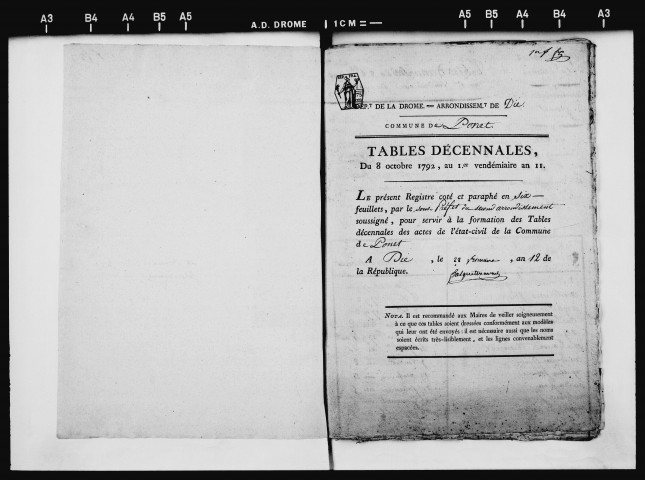 A3 B4 A4 B5 A5 A.D. DROME 1 CM = A5 B5 A4 B4 A3
DÉP.T DE LA DROME. — ARRONDISSEM.T DE Die
COMMUNE DE Ponet.
TABLES DÉCENNALES,
Du 8 octobre 1792, au 1.er vendémiaire an 11.
LE présent Registre coté et paraphé en six
feuillets, par le sous Préfet du second arrondissement
soussigné, pour servir à la formation des Tables
décennales des actes de l'état-civil de la Commune
de Ponet
A Die, le 21, an 12 de
la République.
NOTA. Il est recommandé aux Maires de veiller soigneusement
à ce que ces tables soient dressées conformément aux modèles
qui leur ont été envoyés : il est nécessaire aussi que les noms
soient écrits très-lisiblement, et les lignes convenablement
espacées.